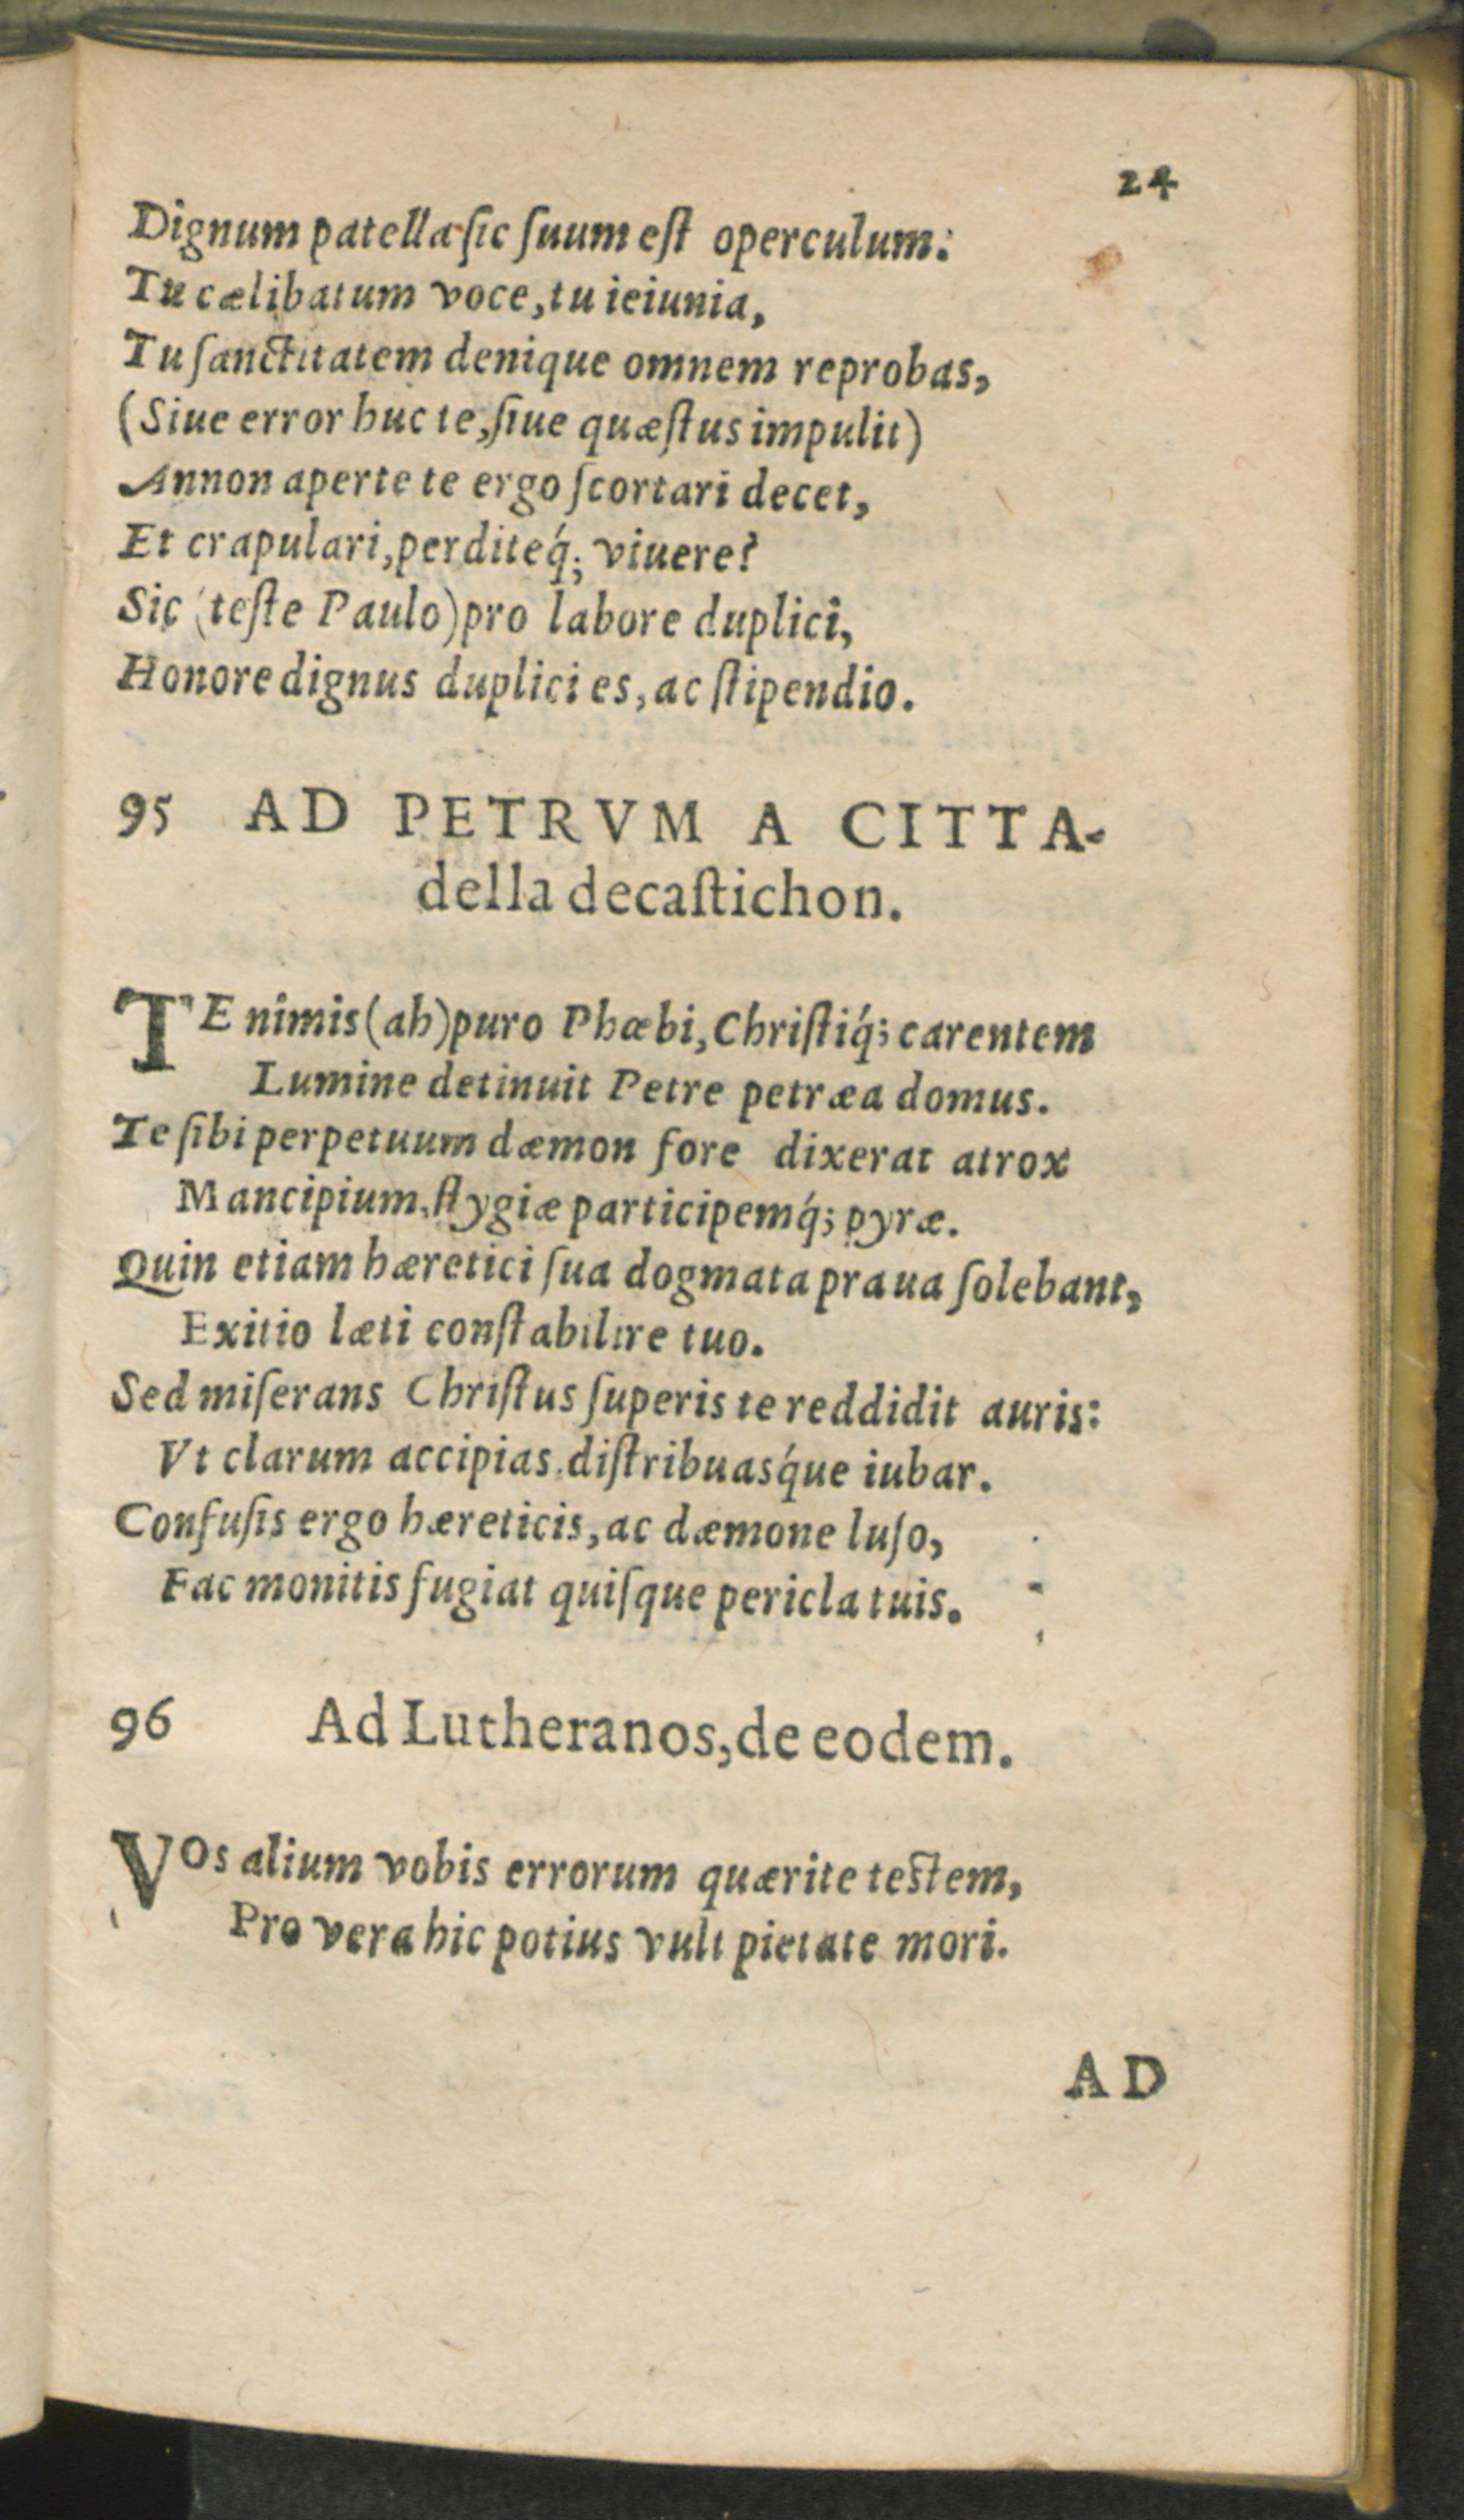 24
Dignum patella ſic ſuum eſt operculum:
Tu cælibatum voce, tu ieiunia,
Tu ſanctitatem denique omnem reprobas,
(Siue error huc te, ſiue quæſtus impulit)
Annon aperte te ergo ſcortari decet,
Et crapulari, perditeq́; viuere?
Sic (teſte Paulo) pro labore duplici,
Honore dignus duplici es, ac ſtipendio.
95 AD PETRVM A CITTA-
della decaſtichon.
TE nimis (ah) puro Phœbi, Chriſtiq́; carentem
Lumine detinuit Petre petræa domus.
Te ſibi perpetuum dæmon fore dixerat atrox
Mancipium, ſtygiæ participemq́; pyræ.
Quin etiam hæretici ſua dogmata praua ſolebant,
Exitio læti conſtabilire tuo.
Sed miſerans Chriſtus ſuperis te reddidit auris:
Vt clarum accipias, diſtribuasq́ue iubar.
Confuſis ergo hæreticis, ac dæmone luſo,
Fac monitis fugiat quiſque pericla tuis.
96 Ad Lutheranos, de eodem.
VOs alium vobis errorum quærite teſtem,
Pro vera hic potius vult pietate mori.
AD